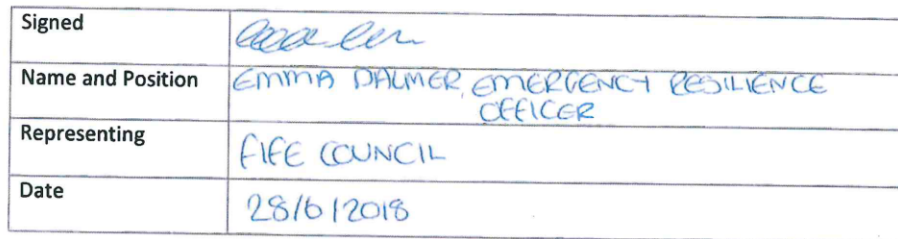 Signed
Name and Position EMMA PALMER, EMERGENCY RESILIENCE
OFFICER
Representing FIFE COUNCIL
Date 28/6/2018